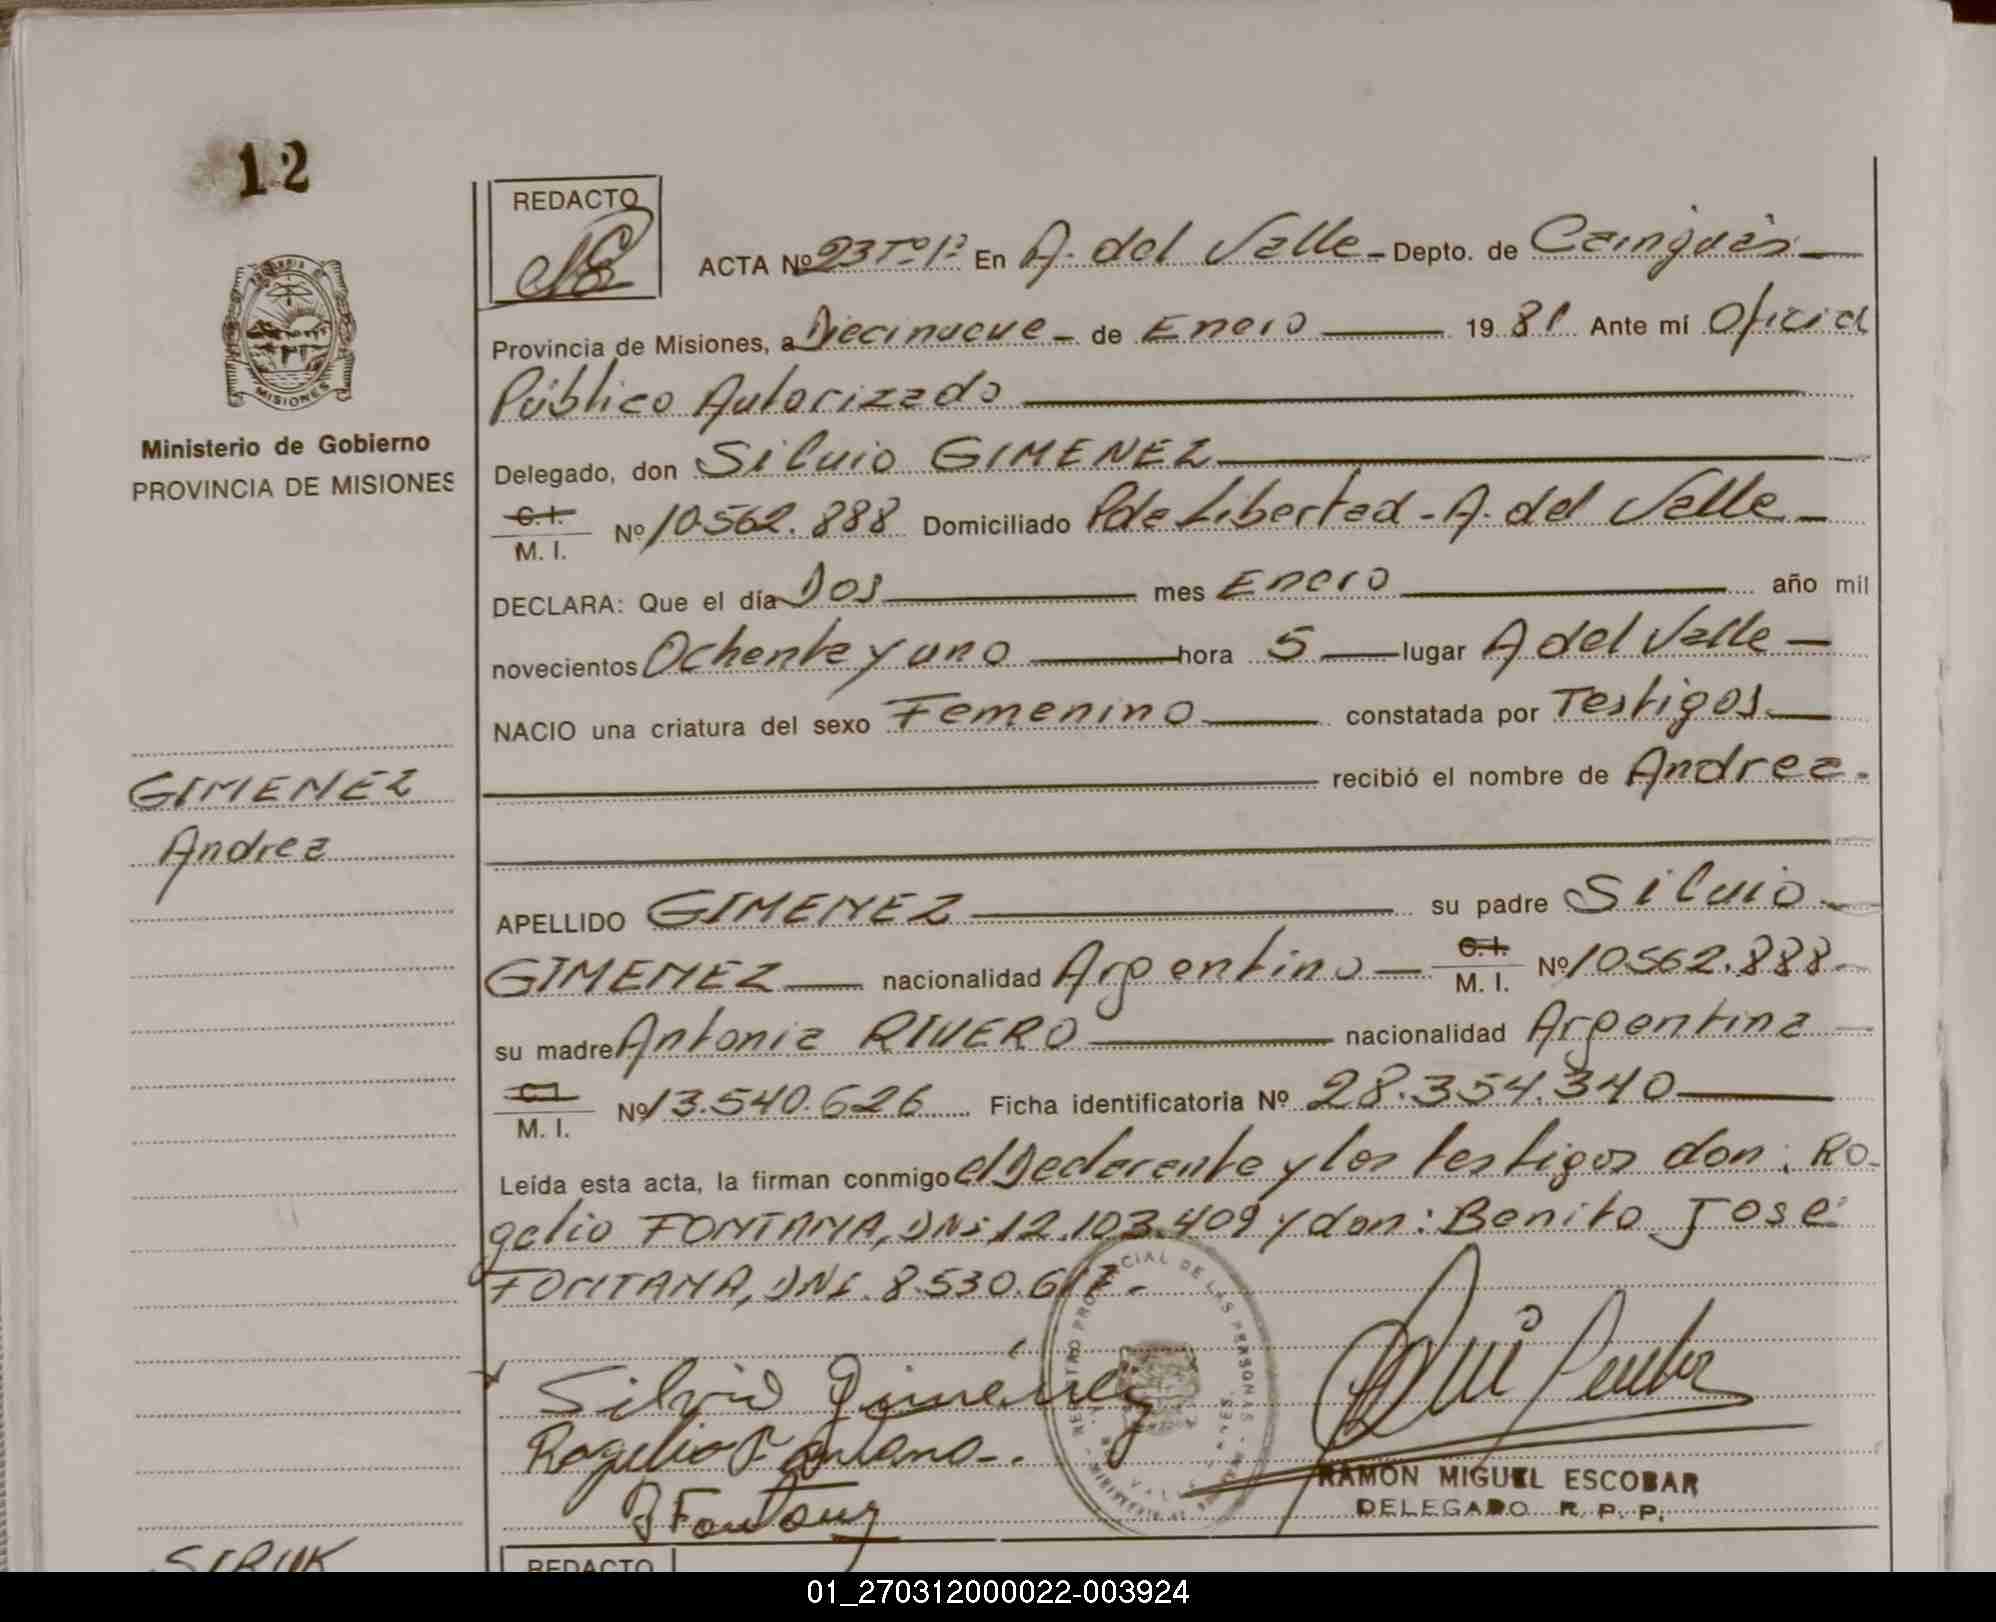 12
REDACTO
ACTA Nº 23 Tº 1º En A. del Valle - Depto. de Cainguàs
Provincia de Misiones, a Diecinueve - de Enero 19 81 Ante mí Oficial
Público Autorizado
Ministerio de Gobierno
PROVINCIA DE MISIONES
MISIONES
Delegado, don Silvio GIMENEZ
C.I.
M. I. Nº 10.562.888 Domiciliado Pde Libertad - A. del Valle -
DECLARA: Que el día Dos mes Enero año mil
novecientos Ochenta y uno hora 5 lugar A del Valle -
NACIO una criatura del sexo Femenino constatada por Testigos
recibió el nombre de Andrea.
GIMENEZ
Andrea
APELLIDO GIMENEZ su padre Silvio
GIMENEZ nacionalidad Argentino C.I. M. I. Nº 10562.888
su madre Antonia RIVERO nacionalidad Argentina
C.I.
M. I. Nº 13.540.626 Ficha identificatoria Nº 28.354.340
Leída esta acta, la firman conmigo el Declarante y los testigos don: Ro-
gelio FONTANA, DNI 12.103.409 y don: Benito José
FONTANA, DNI. 8.530.617.-
Silvio Gimenez
Rogelio Fontana
B Fontana
REGISTRO PROVINCIAL DE LAS PERSONAS
RAMÓN MIGUEL ESCOBAR
DELEGADO R. P. P.
REDACTO
01_270312000022-003924